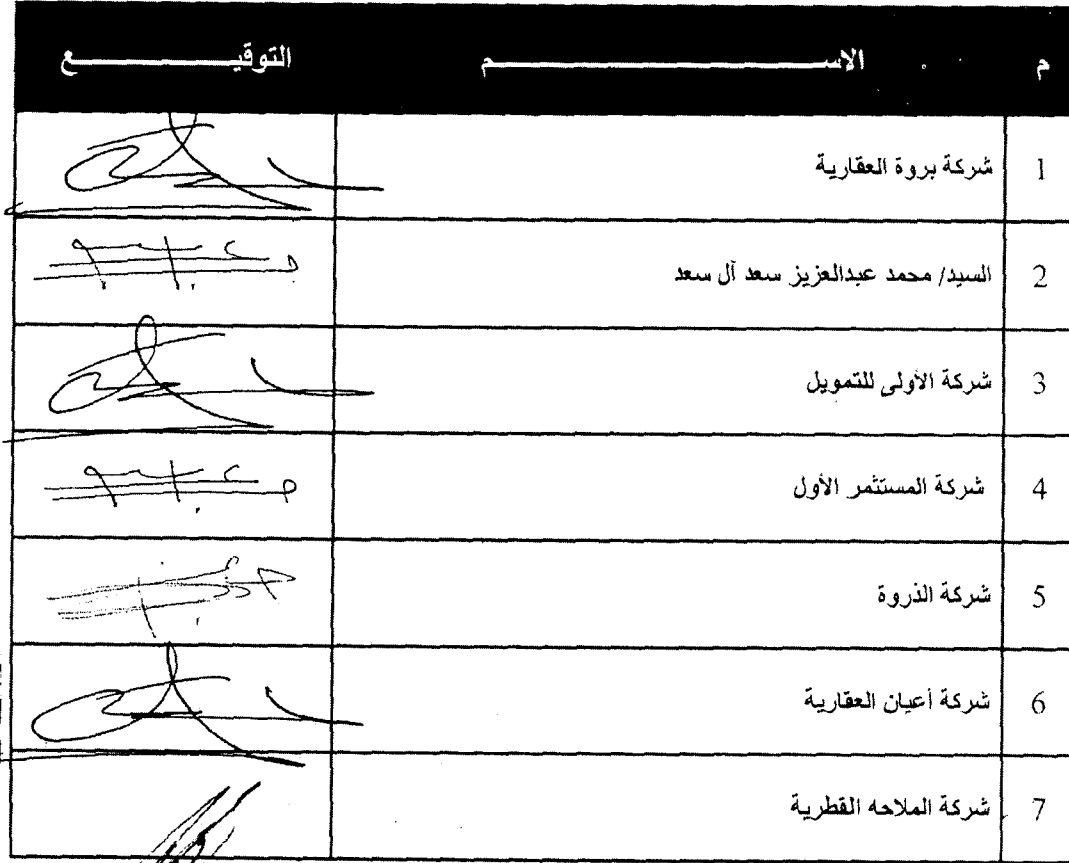 م الاســـــــم التوقيـــــــع
1 شركة بروة العقارية
2 السيد/ محمد عبدالعزيز سعد آل سعد
3 شركة الأولى للتمويل
4 شركة المستثمر الأول
5 شركة الذروة
6 شركة أعيان العقارية
7 شركة الملاحه القطرية